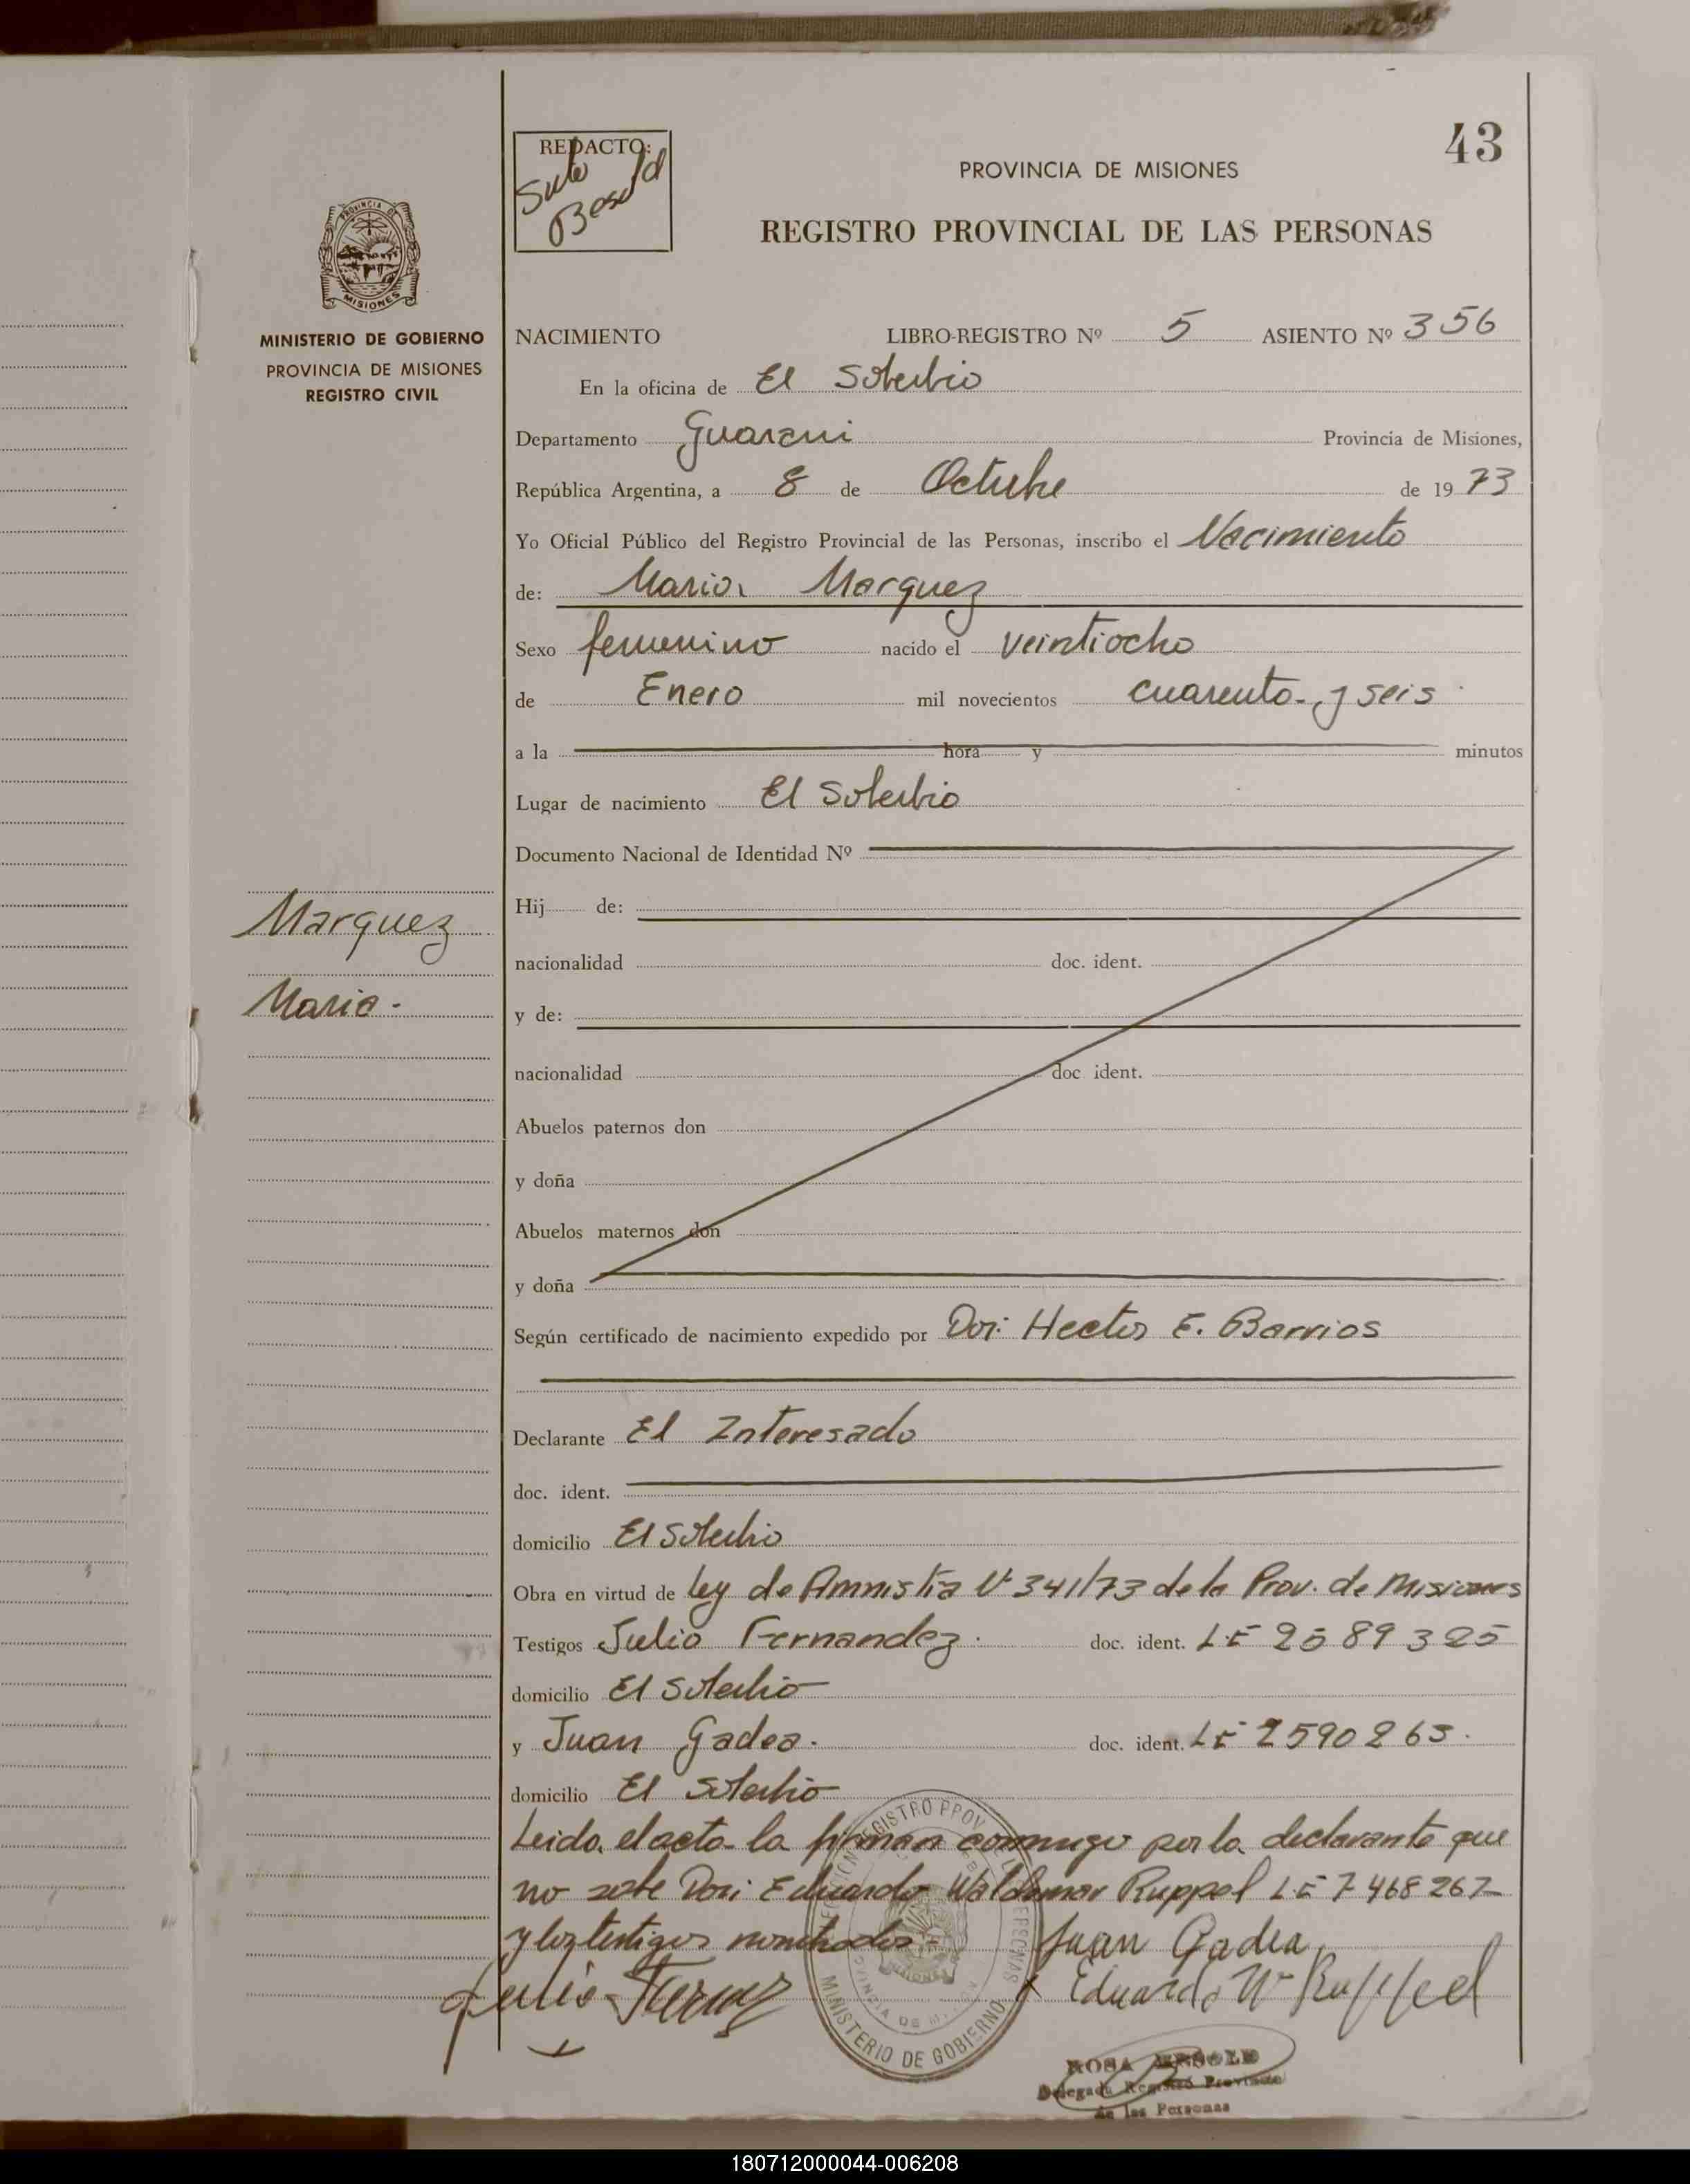 43
REDACTO:
PROVINCIA DE MISIONES
REGISTRO PROVINCIAL DE LAS PERSONAS
PROVINCIA DE
MISIONES
MINISTERIO DE GOBIERNO
PROVINCIA DE MISIONES
REGISTRO CIVIL
NACIMIENTO LIBRO-REGISTRO Nº 5 ASIENTO Nº 356
En la oficina de El Soberbio
Departamento Guarani Provincia de Misiones,
República Argentina, a 8 de Octubre de 1973
Yo Oficial Público del Registro Provincial de las Personas, inscribo el Nacimiento
de: Maria Marquez
Sexo femenino nacido el veintiocho
de Enero mil novecientos cuarenta y seis
a la hora y minutos
Lugar de nacimiento El Soberbio
Documento Nacional de Identidad Nº
Marquez
Maria -
Hij de:
nacionalidad doc. ident.
y de:
nacionalidad doc ident.
Abuelos paternos don
y doña
Abuelos maternos don
y doña
Según certificado de nacimiento expedido por Don: Hector E. Barrios
Declarante El Interesado
doc. ident.
domicilio El Soberbio
Obra en virtud de Ley de Amnistia Nº 341/73 de la Prov. de Misiones
Testigos Julio Fernandez. doc. ident. L.E 2589325
domicilio El Soberbio
y Juan Gadea. doc. ident. LE 2590263.
domicilio El Soberbio
Leida el acta la firman conmigo por la declarante que
no sabe Don: Eduardo Waldemar Ruppel L.E 7468267
y los testigos nombrados -
Juan Gadea
Eduardo W Ruppel
MINISTERIO DE GOBIERNO
ROSA BESOLD
Delegada Registro Provincial
de las Personas
180712000044-006208